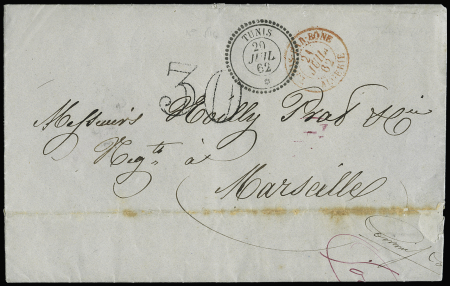 TUNIS
20
JUIL
62
BONE
21
JUIL
62
ALGERIE
30
Messieurs Noilly Prat & Cie
Negts à
Marseille